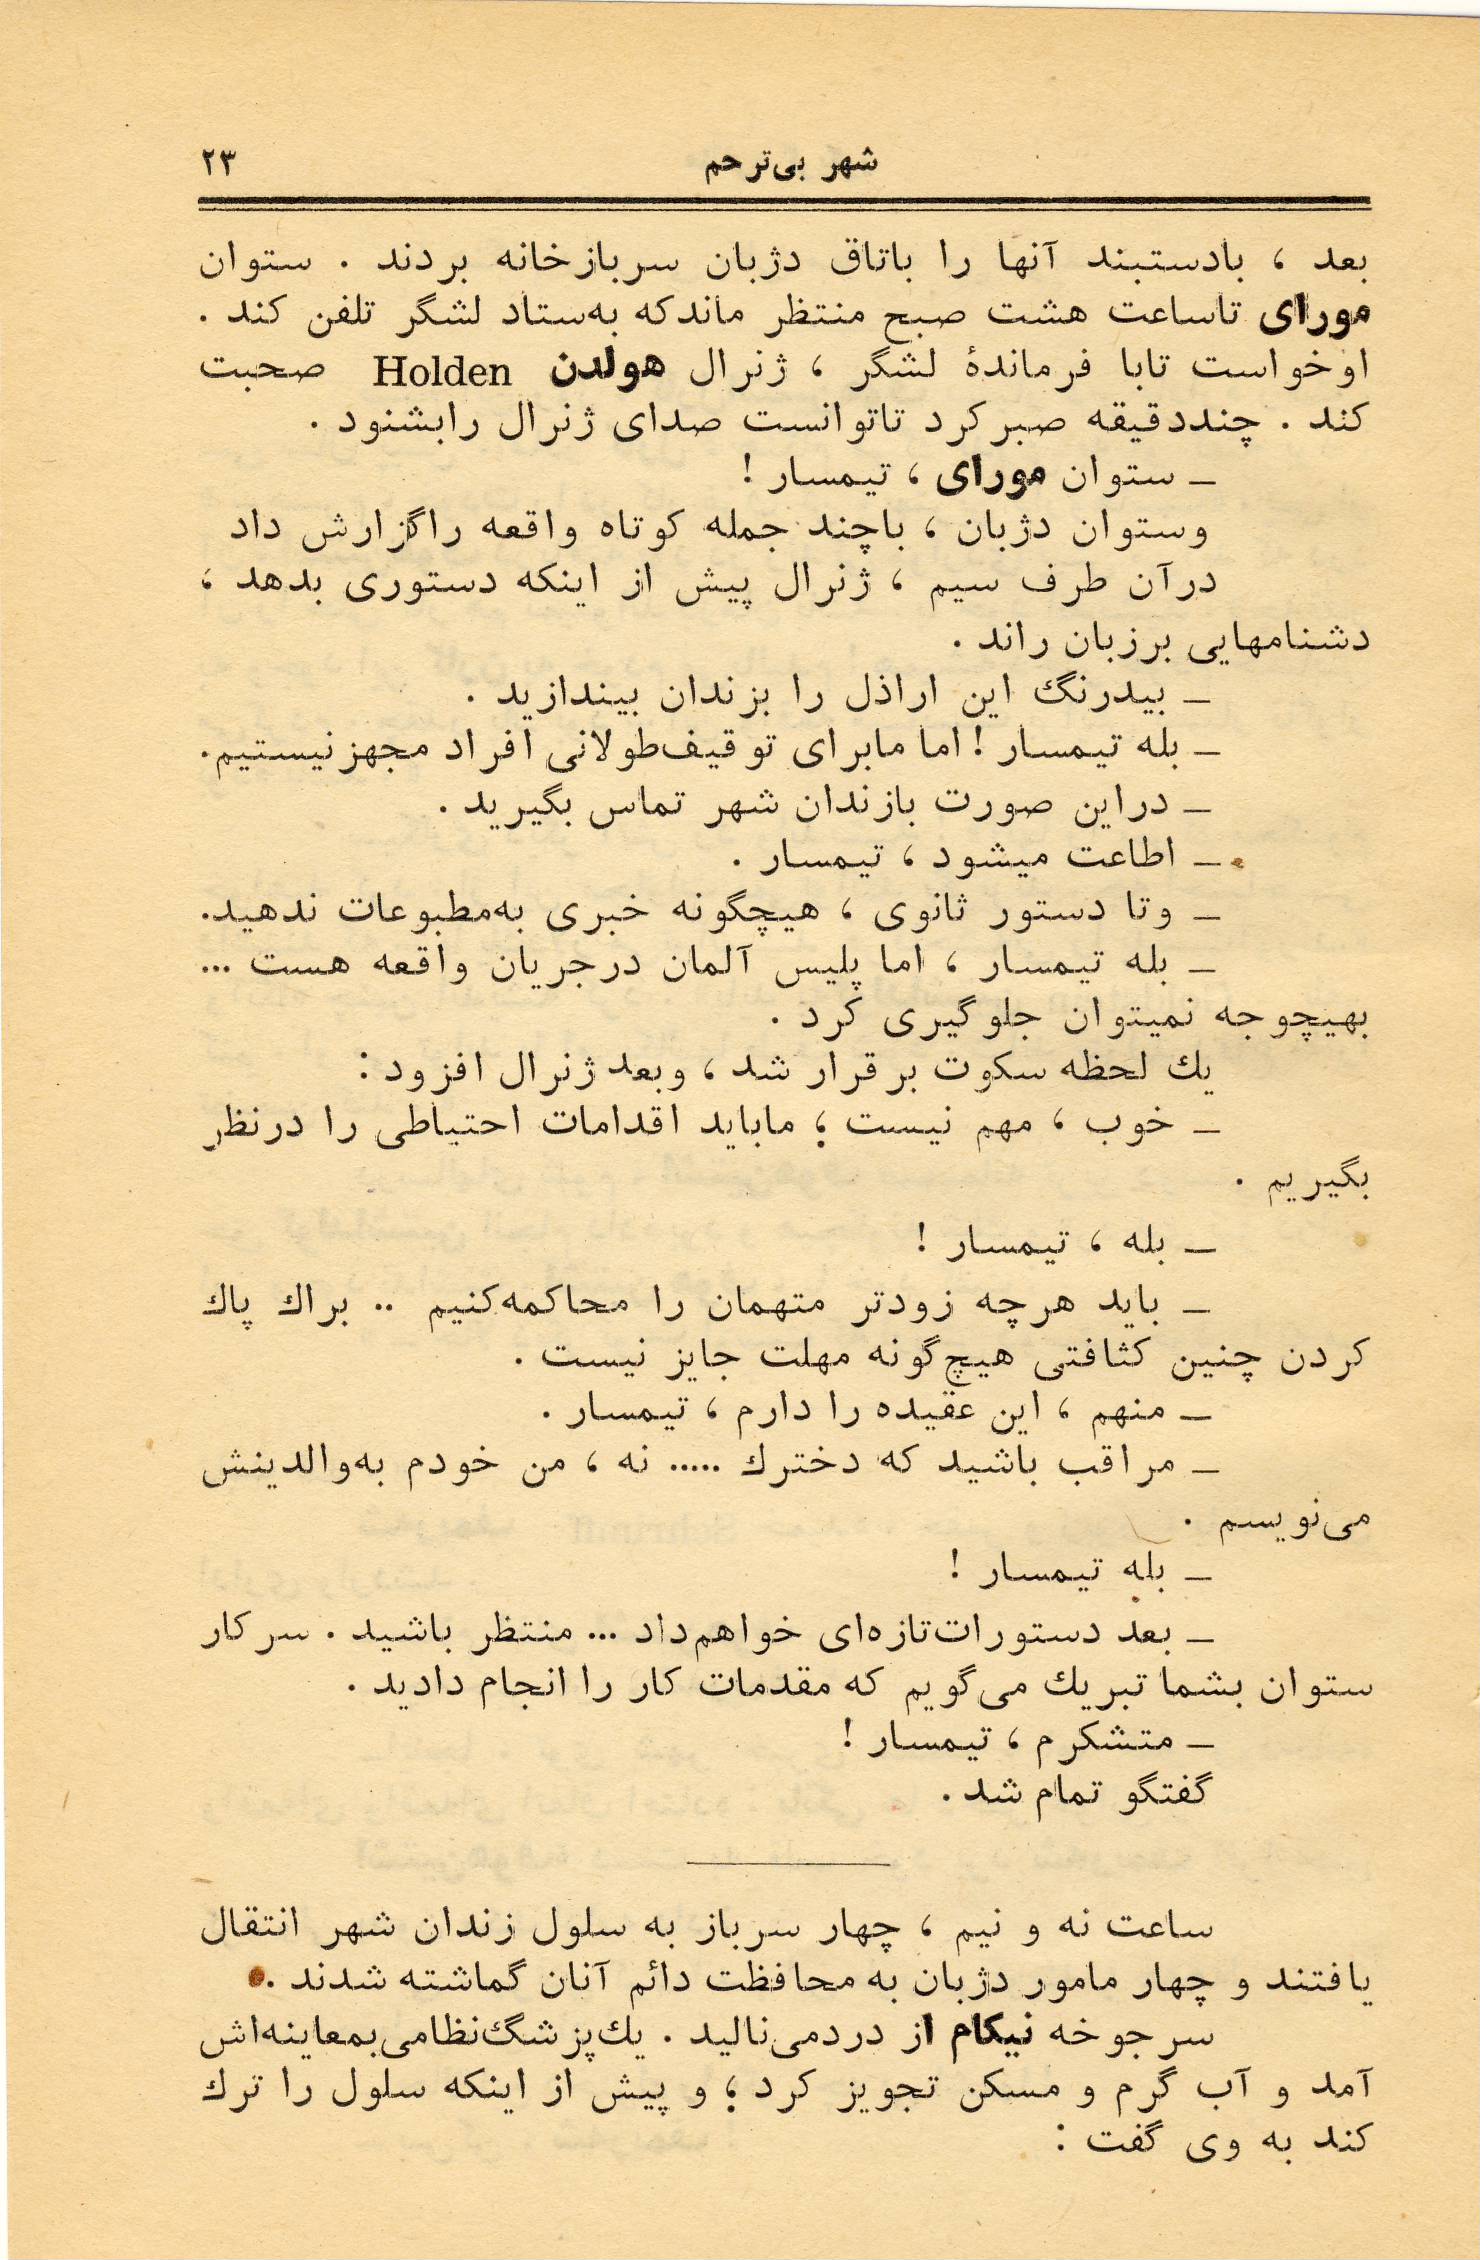 شهر بی‌ترحم
۲۳
بعد ، بادستبند آنها را باتاق دژبان سربازخانه بردند . ستوان
مورای تاساعت هشت صبح منتظر ماندکه به‌ستاد لشگر تلفن کند .
اوخواست تابا فرماندهٔ لشگر ، ژنرال هولدن Holden صحبت
کند . چنددقیقه صبرکرد تاتوانست صدای ژنرال رابشنود .
ـ ستوان مورای ، تیمسار !
وستوان دژبان ، باچند جمله کوتاه واقعه راگزارش داد
درآن طرف سیم ، ژنرال پیش از اینکه دستوری بدهد ،
دشنامهایی برزبان راند .
ـ بیدرنگ این اراذل را بزندان بیندازید .
ـ بله تیمسار ! اما مابرای توقیف‌طولانی افراد مجهزنیستیم.
ـ دراین صورت بازندان شهر تماس بگیرید .
ـ اطاعت میشود ، تیمسار .
ـ وتا دستور ثانوی ، هیچگونه خبری به‌مطبوعات ندهید.
ـ بله تیمسار ، اما پلیس آلمان درجریان واقعه هست ...
بهیچوجه نمیتوان جلوگیری کرد .
یك لحظه سکوت برقرار شد ، وبعد ژنرال افزود :
ـ خوب ، مهم نیست ؛ ماباید اقدامات احتیاطی را درنظر
بگیریم .
ـ بله ، تیمسار !
ـ باید هرچه زودتر متهمان را محاکمه‌کنیم .. براك پاك
کردن چنین کثافتی هیچ‌گونه مهلت جایز نیست .
ـ منهم ، این عقیده را دارم ، تیمسار .
ـ مراقب باشید که دخترك ..... نه ، من خودم به‌والدینش
می‌نویسم .
ـ بله تیمسار !
ـ بعد دستورات‌تازه‌ای خواهم‌داد ... منتظر باشید . سرکار
ستوان بشما تبریك می‌گویم که مقدمات کار را انجام دادید .
ـ متشکرم ، تیمسار !
گفتگو تمام شد .
ساعت نه و نیم ، چهار سرباز به سلول زندان شهر انتقال
یافتند و چهار مامور دژبان به محافظت دائم آنان گماشته شدند .
سرجوخه نیکام از دردمی‌نالید . یك‌پزشگ‌نظامی‌بمعاینه‌اش
آمد و آب گرم و مسکن تجویز کرد ؛ و پیش از اینکه سلول را ترك
کند به وی گفت :